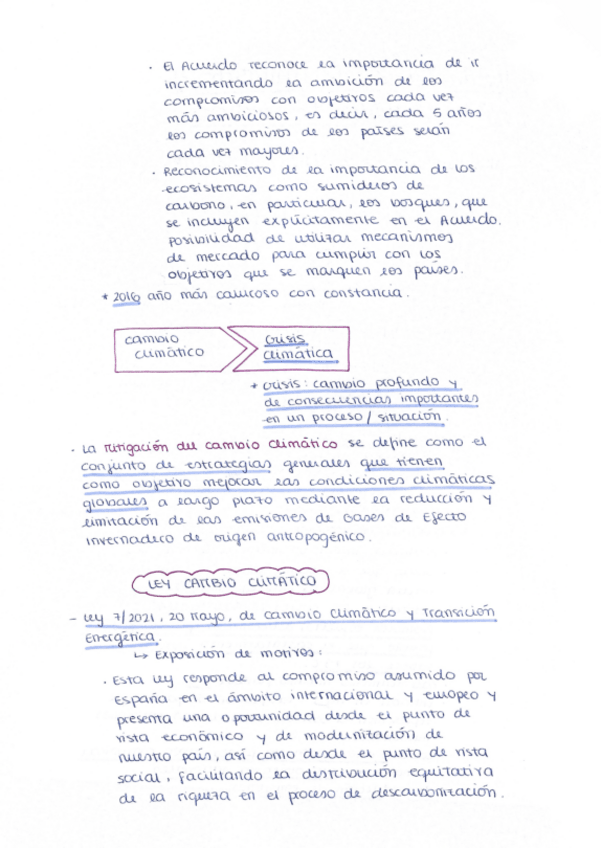 · El Acuerdo reconoce la importancia de ir
incrementando la ambición de los
compromisos con objetivos cada vez
más ambiciosos, es decir, cada 5 años
los compromisos de los países serán
cada vez mayores.
· Reconocimiento de la importancia de los
ecosistemas como sumideros de
carbono, en particular, los bosques, que
se incluyen explícitamente en el Acuerdo.
Posibilidad de utilizar mecanismos
de mercado para cumplir con los
objetivos que se marquen los países.
* 2016 año más caluroso con constancia.
cambio
climático
crisis
climática
* crisis: cambio profundo y
de consecuencias importantes
en un proceso / situación.
· La mitigación del cambio climático se define como el
conjunto de estrategias generales que tienen
como objetivo mejorar las condiciones climáticas
globales a largo plazo mediante la reducción y
limitación de las emisiones de Gases de Efecto
Invernadero de origen antropogénico.
LEY CAMBIO CLIMÁTICO
- Ley 7/2021, 20 Mayo, de Cambio Climático y Transición
Energética.
↳ Exposición de motivos:
· Esta ley responde al compromiso asumido por
España en el ámbito internacional y europeo y
presenta una oportunidad desde el punto de
vista económico y de modernización de
nuestro país, así como desde el punto de vista
social, facilitando la distribución equitativa
de la riqueza en el proceso de descarbonización.